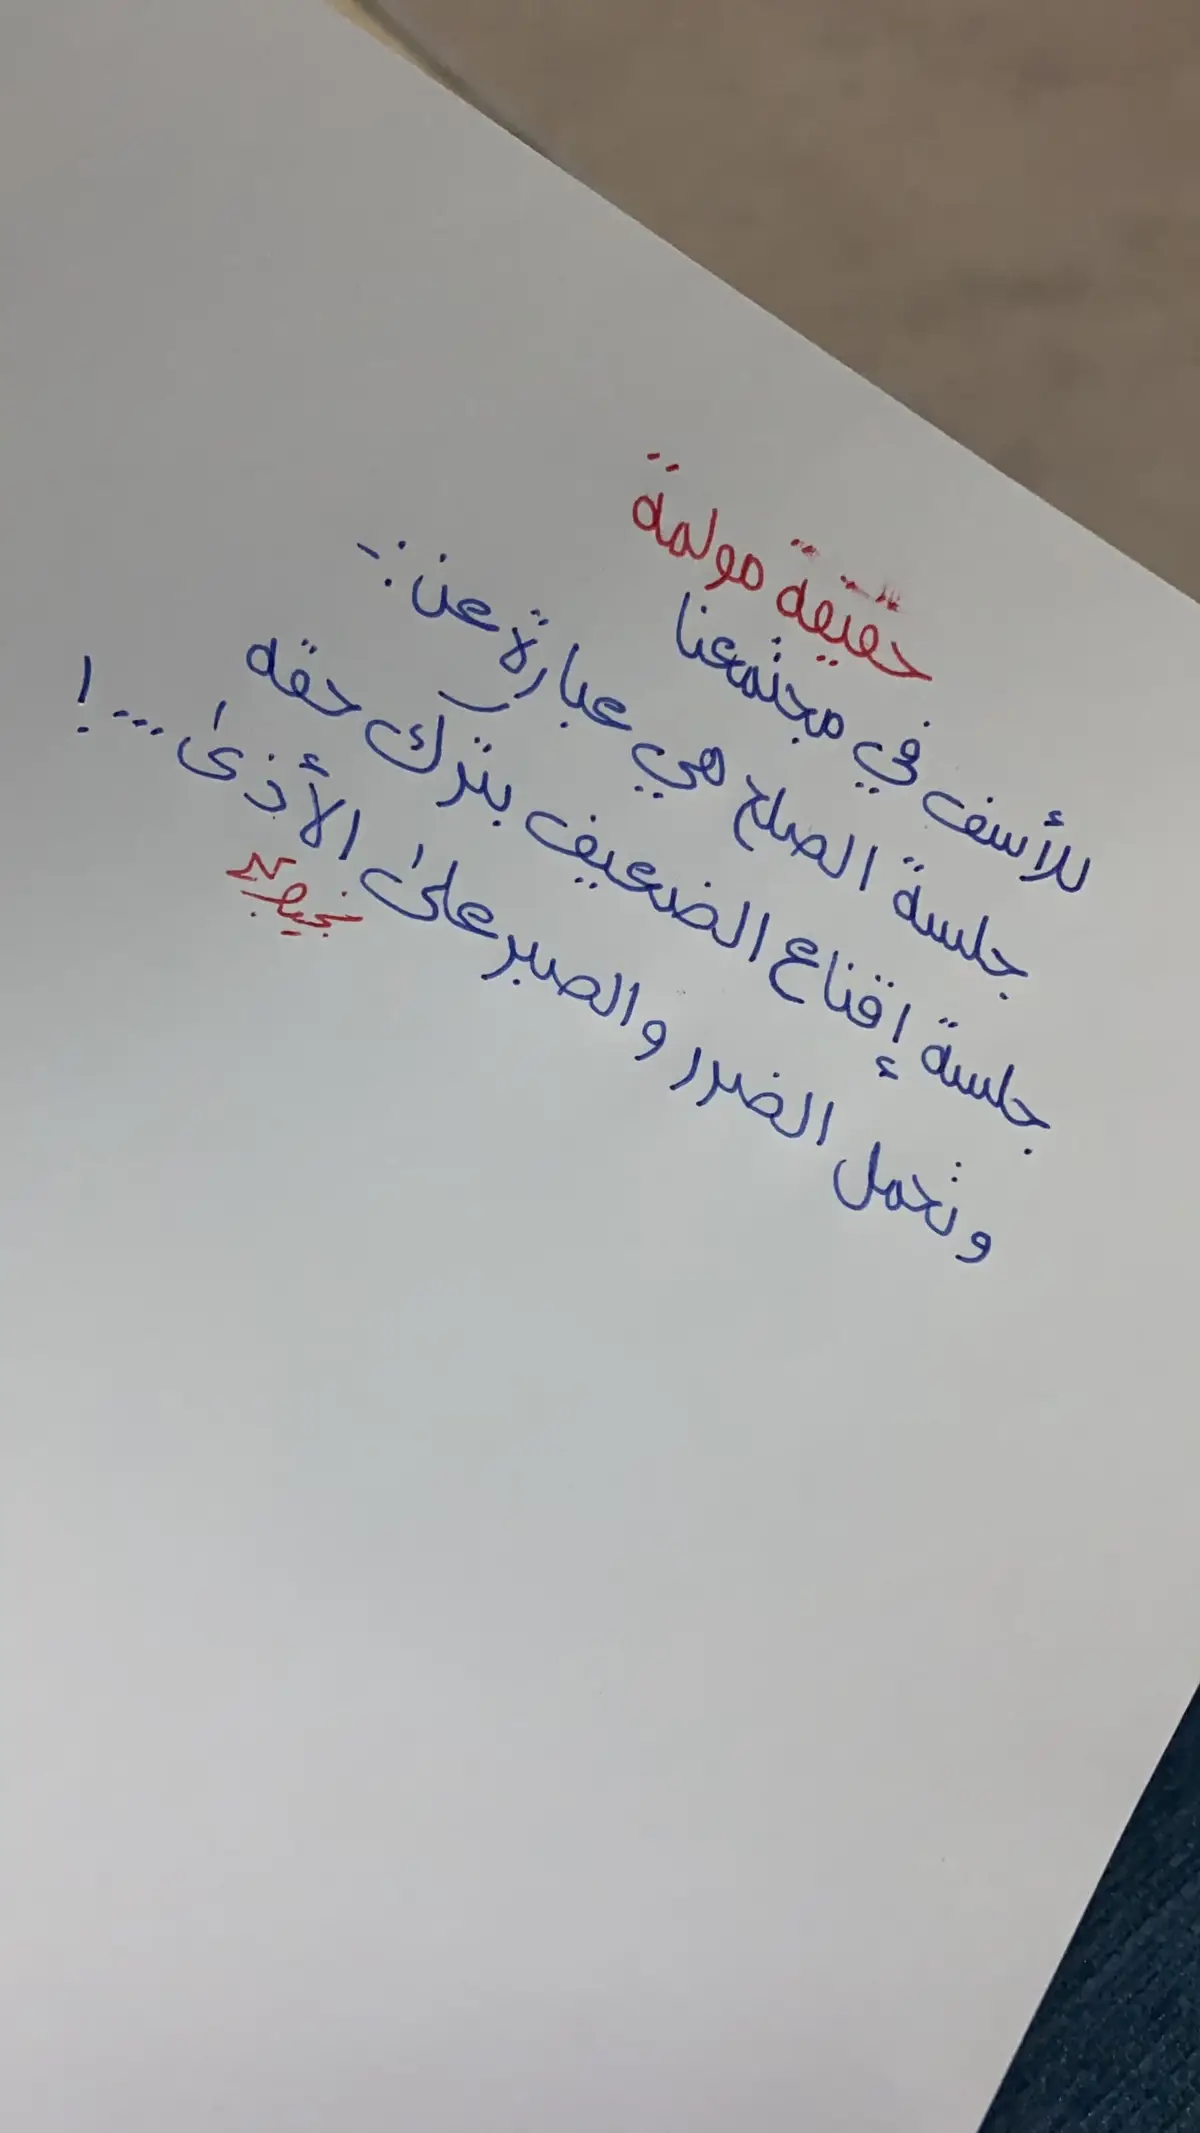 حقيقة مولمة
للأسف في مجتمعنا
جلسة الصلح هي عبارة عن :-
جلسة إقناع الضعيف بترك حقه
وتحمل الضرر والصبر على الأذى ...!